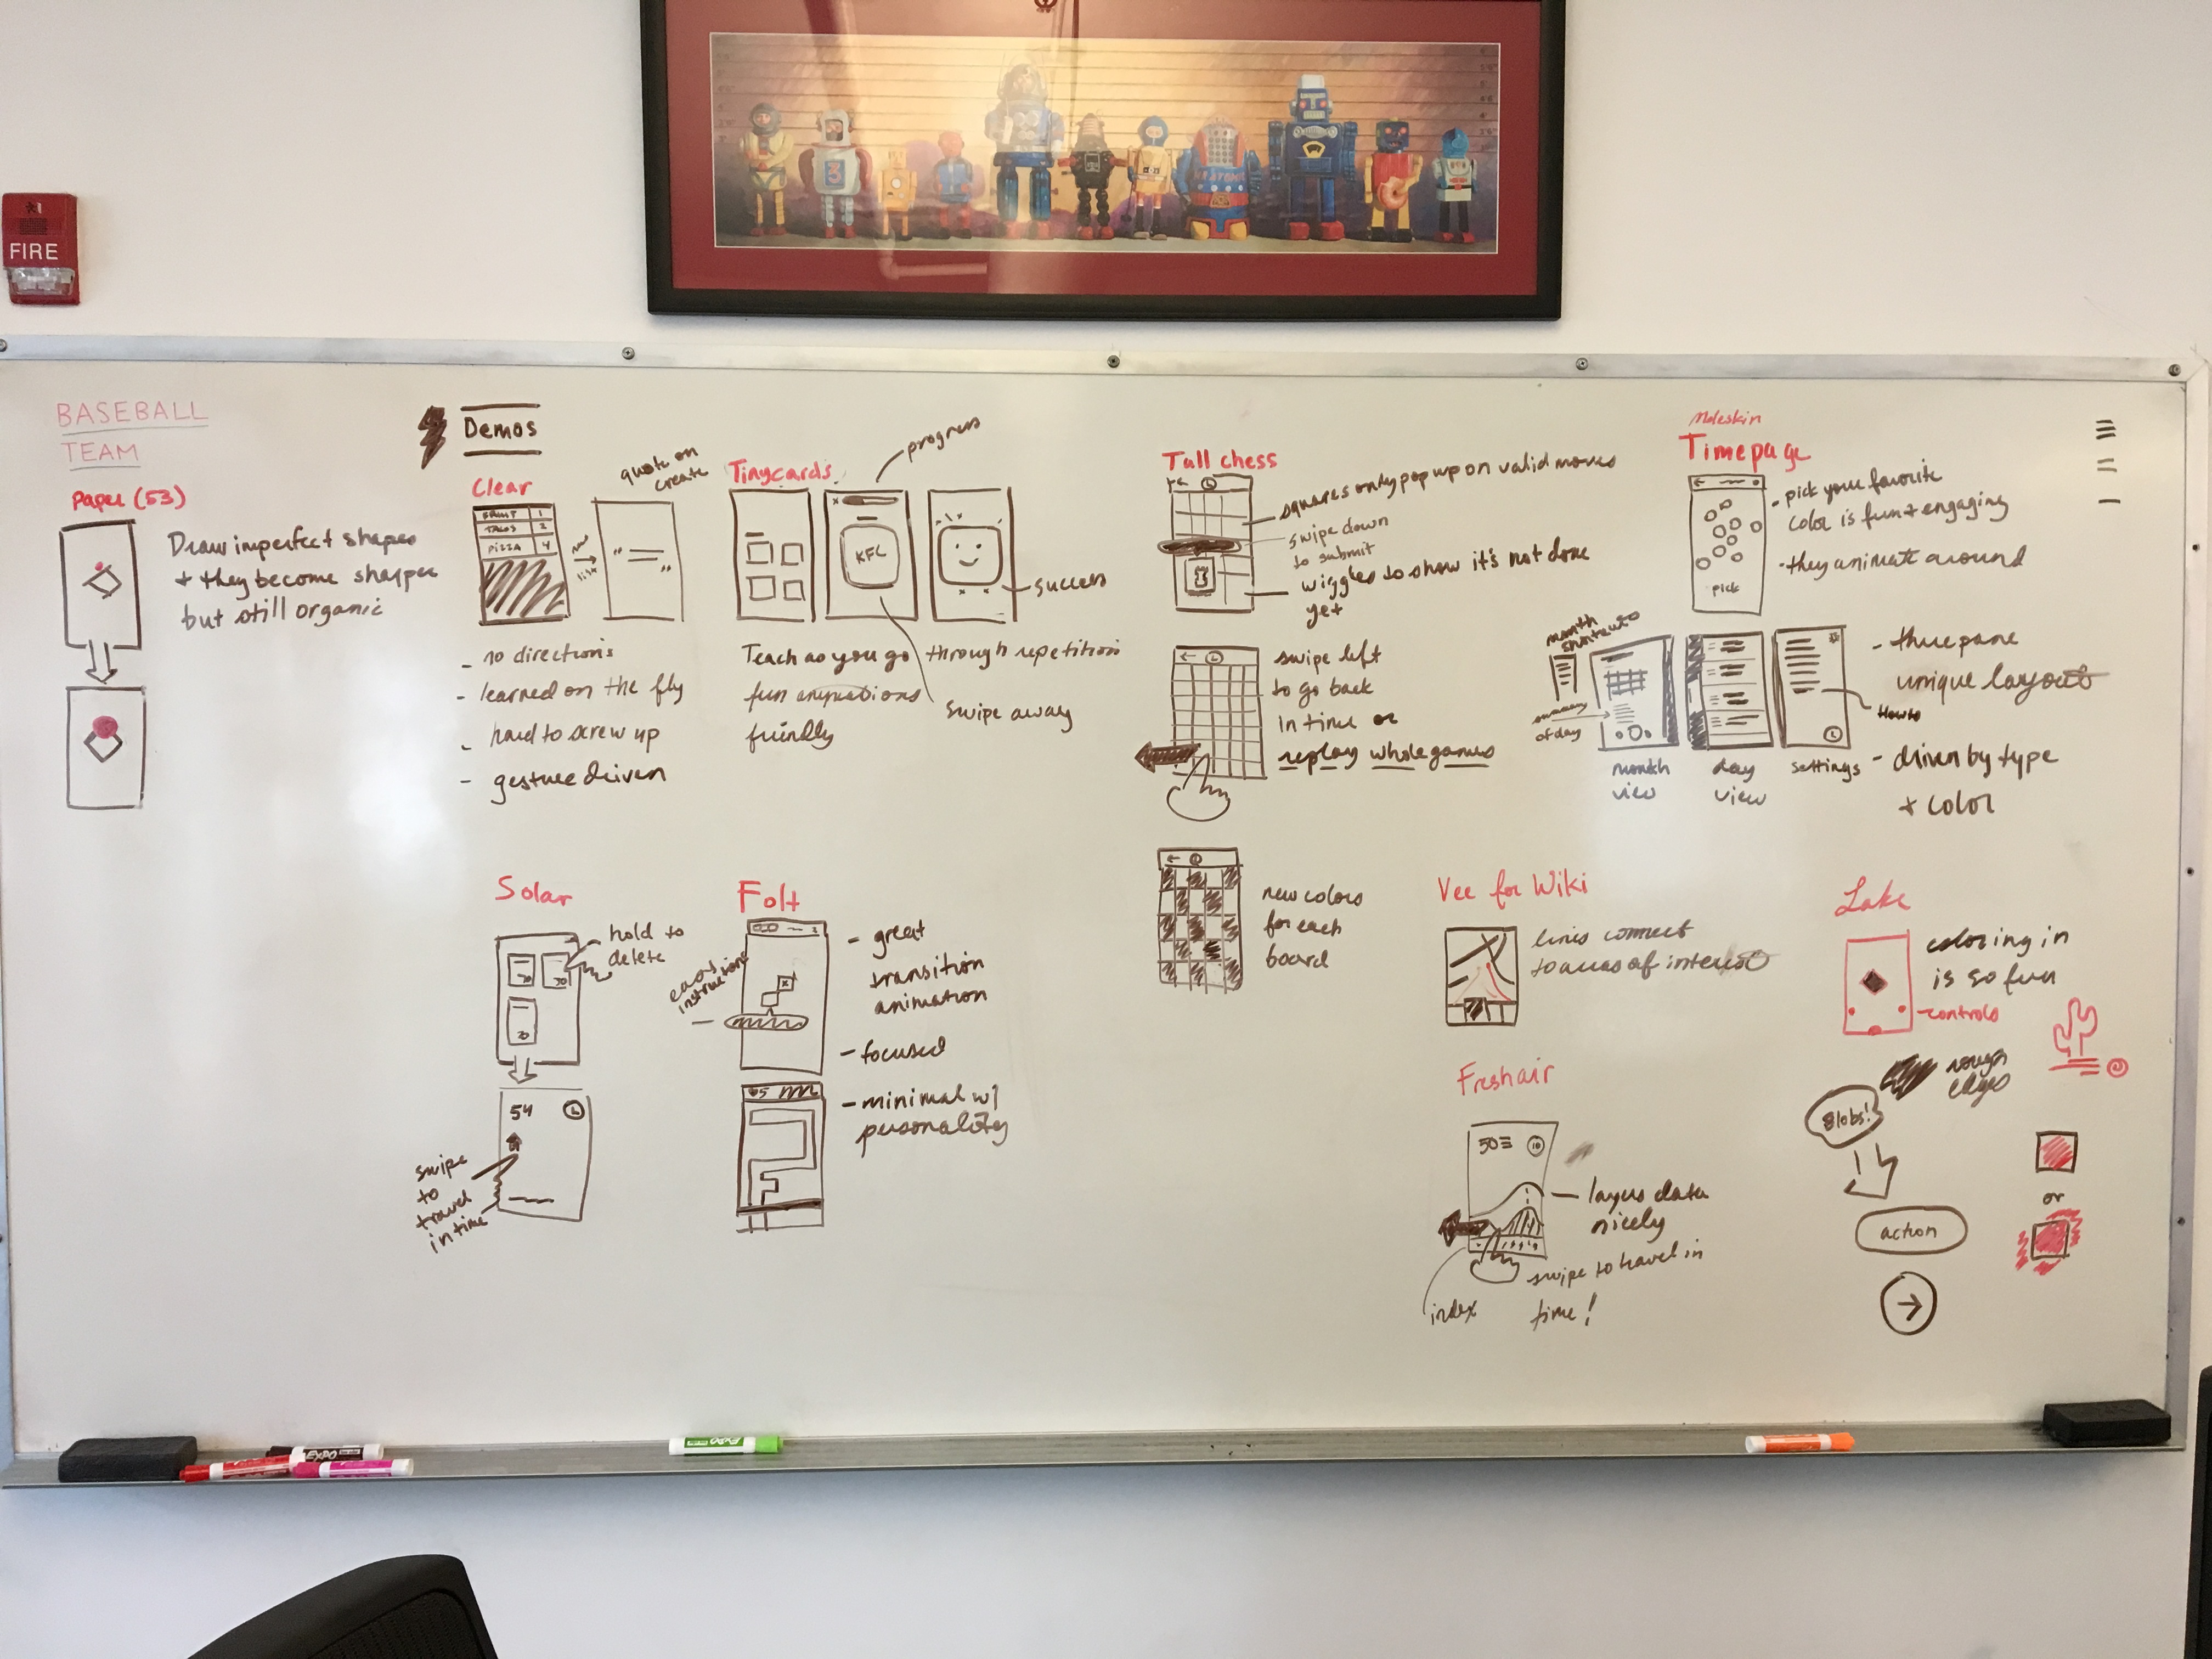 FIRE
BASEBALL
TEAM
Paper (53)
Draw imperfect shapes
+ they become sharper
but still organic
Demos
Clear
quote on
create
TACOS 2
PIZZA 4
new
list
- no directions
- learned on the fly
- hard to screw up
- gesture driven
Tinycards
progress
KFC
success
Teach as you go through repetition
fun animations
friendly
swipe away
Solar
hold to
delete
54
swipe
to
travel
in time
Folt
easy
instructions
- great
transition
animation
- focused
- minimal w/
personality
Tall chess
squares only pop up on valid moves
swipe down
to submit
wiggles to show it's not done
yet
swipe left
to go back
in time or
replay whole games
new colors
for each
board
Moleskin
Timepage
- pick your favorite
color is fun + engaging
- they animate around
pick
month
summary
of day
month
view
day
view
settings
How to
- three pane
unique layout
- driven by type
+ color
Vee for Wiki
lines connect
to areas of interest
Freshair
50
10
layers data
nicely
swipe to travel in
time!
index
Lake
coloring in
is so fun
controls
rough
edges
Blobs!
action
or
EXPO